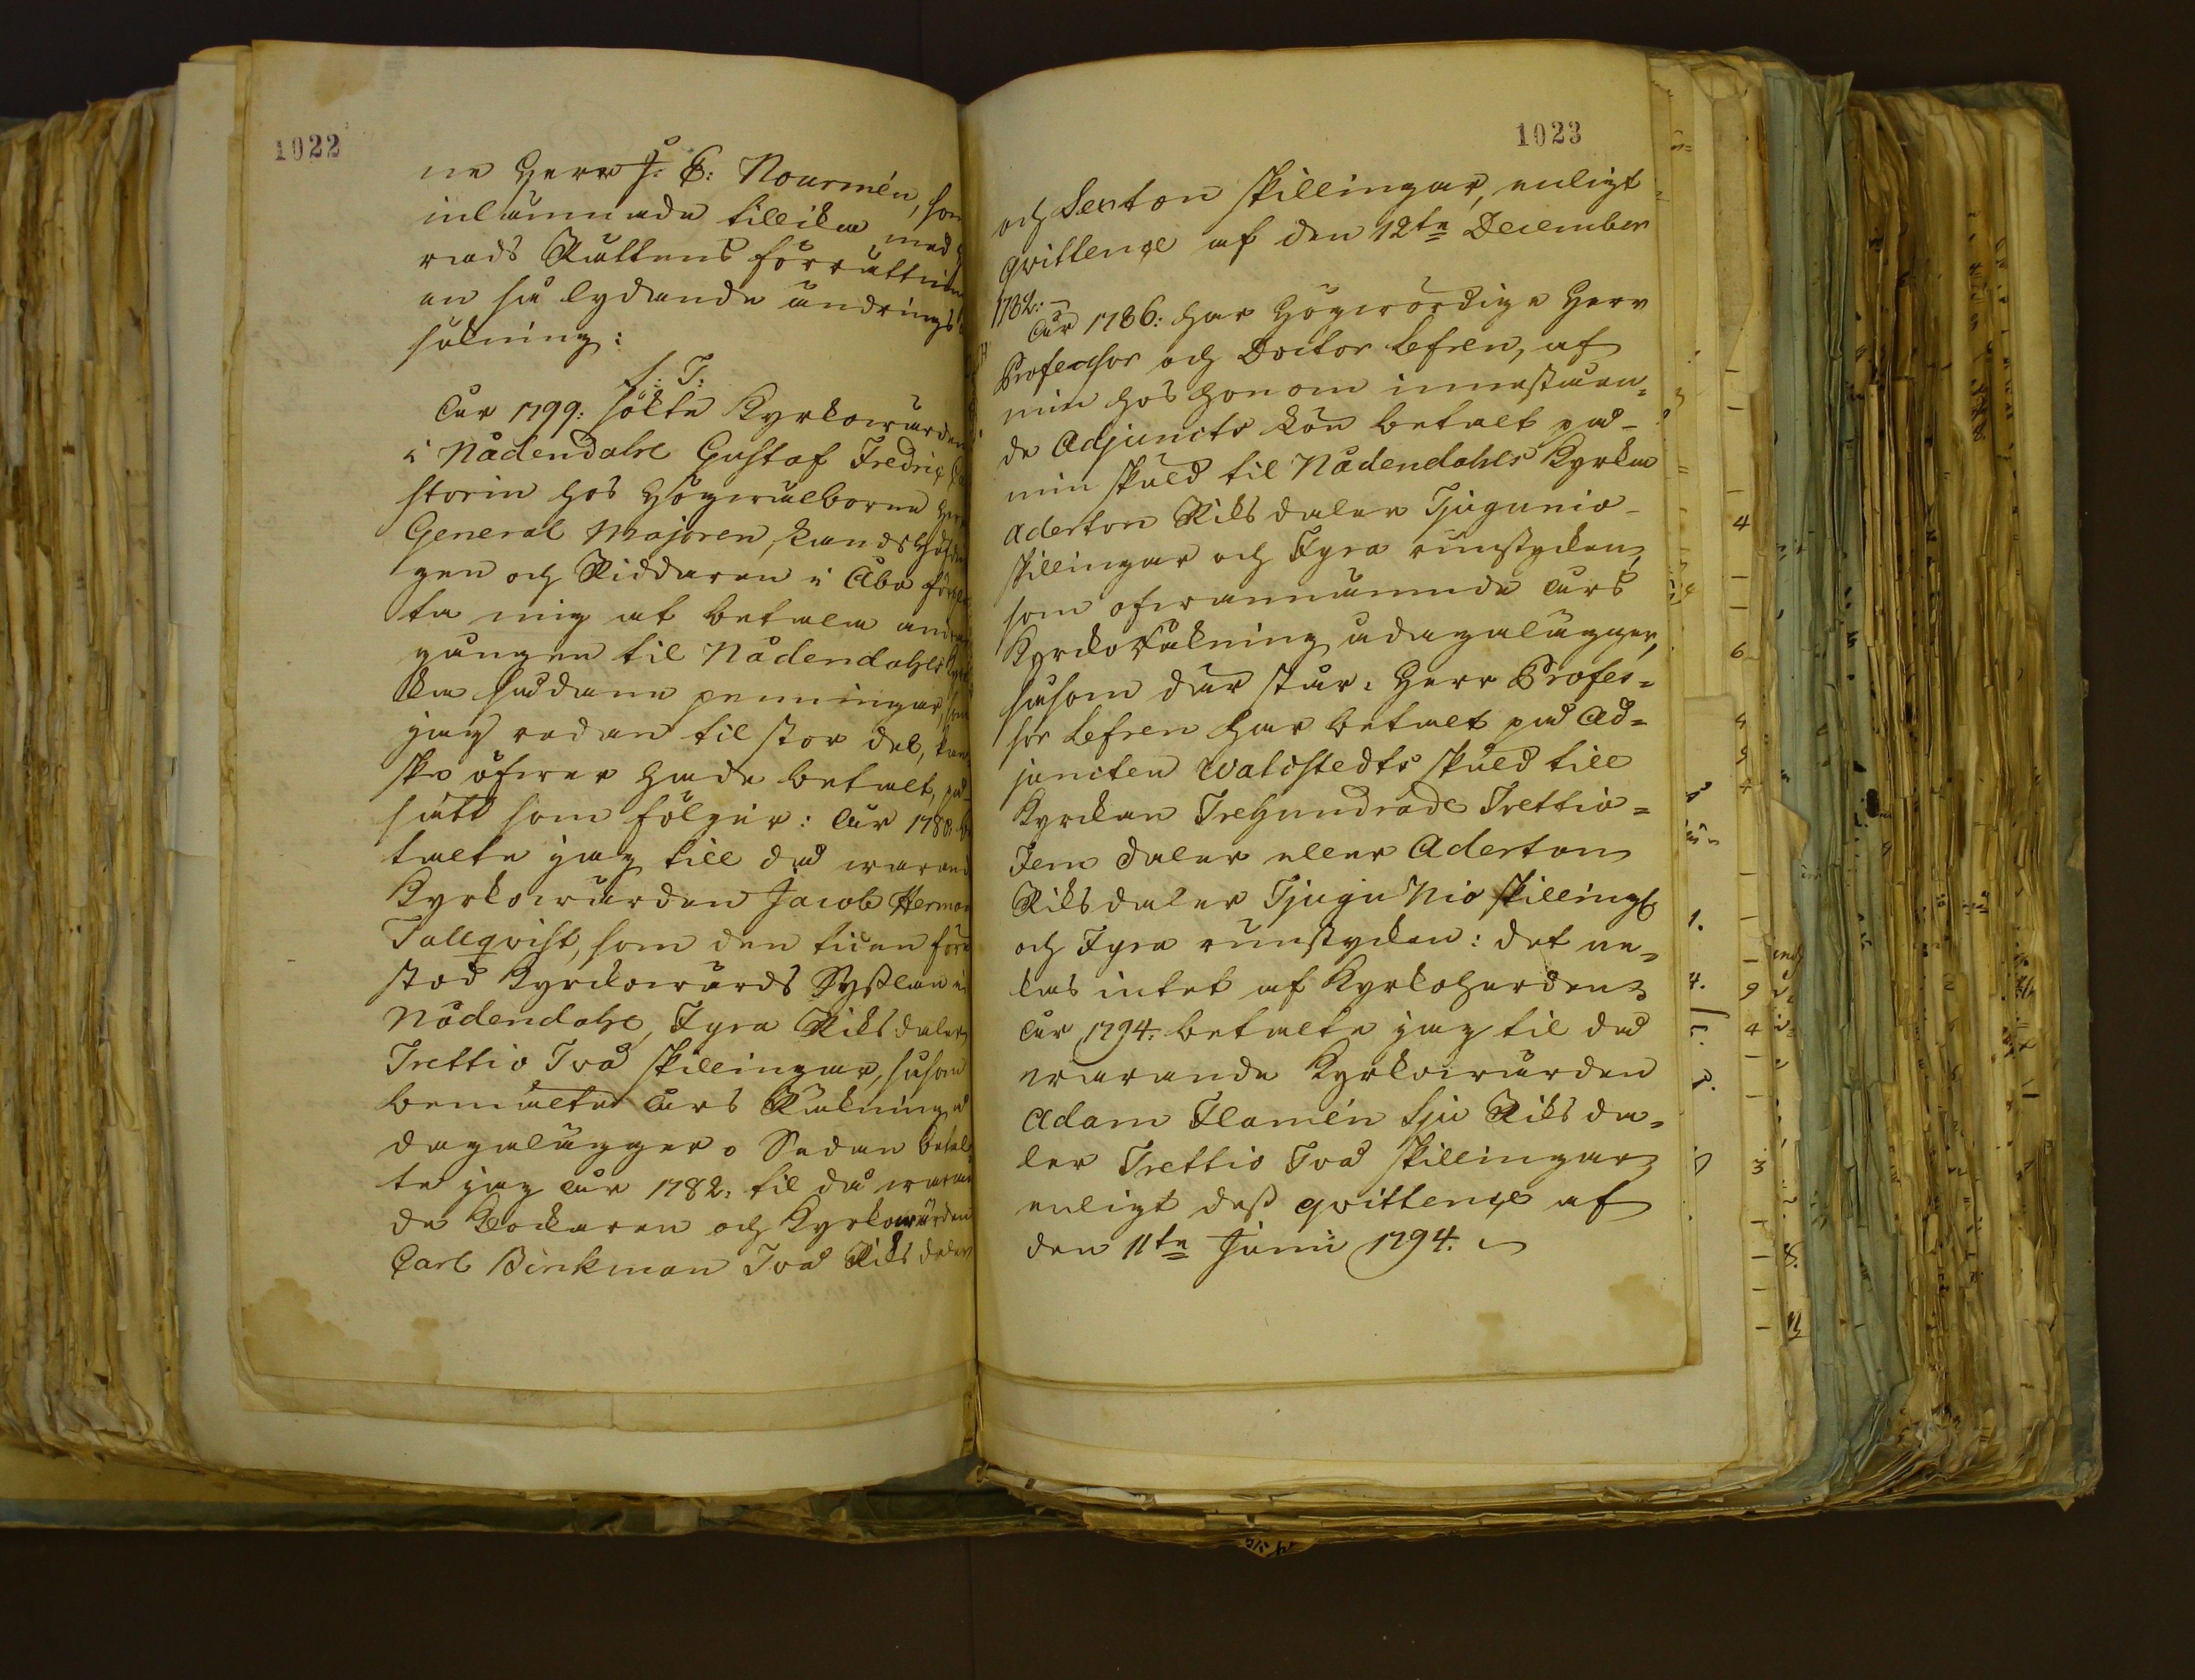 1022
ne Herr J. E: Nourmén, som
inlämnade tillika med
rads Rättens förrättnin
en så lydande ändrings
sökning:
S: T:
Åhr 1799. sökte Kyrkowärden
i Nådendahl Gustaf Fredric
storin hos Högwälborne Herr
General Majoren, Landshöfdin
gen och Riddaren i Åbo
ta mig at betala
gången til Nådendahls Kyr
ka sådane penningar, som
jag redan til stor del, kan
ske öfwer hade betalt, på
sätt som följer: Åhr 1780. be
talte jag till då warand
Kyrkowärden Jacob Herman
Tallqvist, som den tiden före
stod Kyrckowärds Sysslan i
Nådendahl, Fyra Riksdaler
Trettio Två skillingar, såsom
bemälte Åhrs Räkning å
dagalägger. Sedan betal
te jag Åhr 1782. til då waran
de Klockaren och Kyrkowärden
Carl Binkman Två Riksdaler
1023
och Sexton skillingar, enligt
qvittence af den 12te December
1782.
Åhr 1786: har Högwördige Herr
Professor och Doctor Lefren, af
min hos honom innestaen=
de Adjuncts Lön betalt på
min skuld til Nådendahls Kyrka
Aderton Riksdaler Tjugunio
skillingar och Fyra runstycken,
som ofwannämnde Åhrs
Kyrko Räkning ådagalägger,
såsom där står: Herr Profes=
sor Lefren har betalt på Ad=
juncten Walcstedts skuld till
Kyrckan Trehundrade Trettio=
Fem daler eller Aderton
Riksdaler Tjugu Nio skillingr
och Fyra runstycken: det ne=
kas intet af Kyrkoherden
Åhr 1794. betalte jag til då
warande Kyrkowärden
Adam Flamén Sju Riksda=
ler Trettio Två skillingar
enligt dess qvittence af
den 11te Junii 1794.